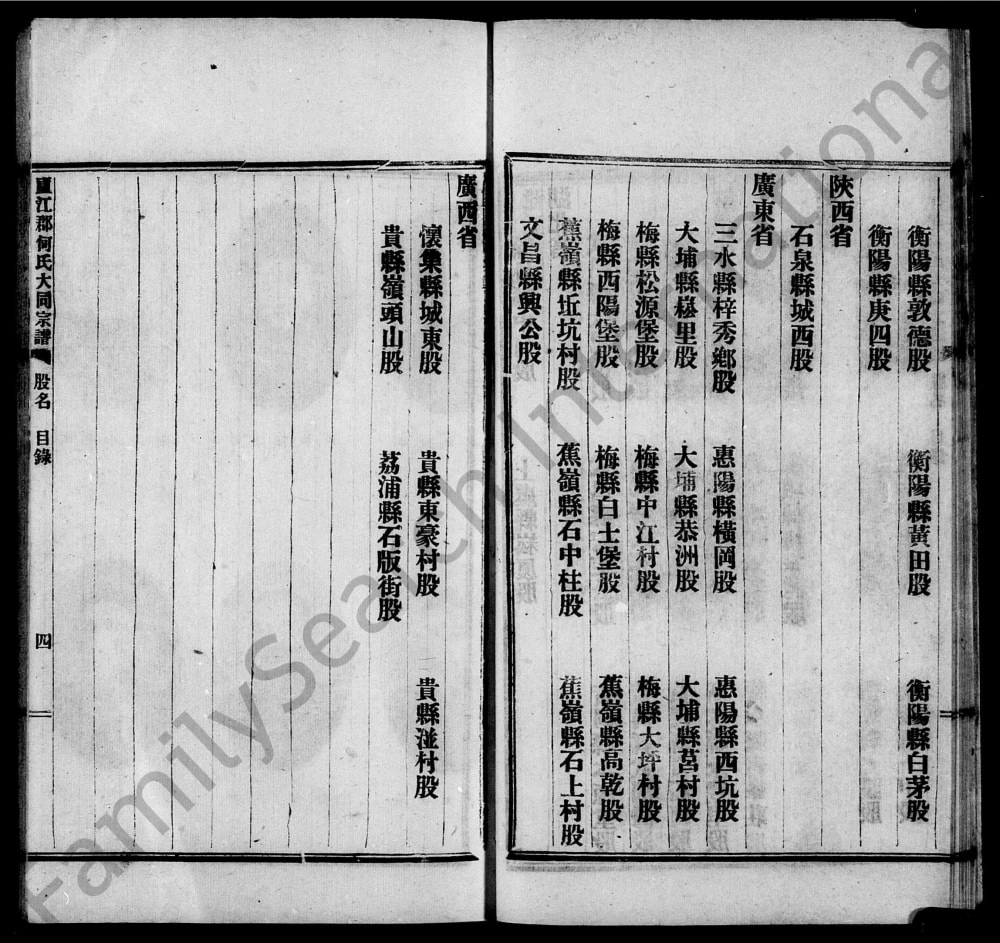 衡陽縣敦德股　衡陽縣黃田股　衡陽縣白茅股
衡陽縣庚四股
陝西省
石泉縣城西股
廣東省
三水縣梓秀鄉股　惠陽縣橫岡股　惠陽縣西坑股
大埔縣崧里股　大埔縣恭洲股　大埔縣莒村股
梅縣松源堡股　梅縣中江村股　梅縣大坪村股
梅縣西陽堡股　梅縣白土堡股　蕉嶺縣高乾股
蕉嶺縣坵坑村股　蕉嶺縣石中柱股　蕉嶺縣石上村股
文昌縣興公股
廣西省
懷集縣城東股　貴縣東豪村股　貴縣湴村股
貴縣嶺頭山股　荔浦縣石版街股
廬江郡何氏大同宗譜　股名　目錄　四
FamilySearch International